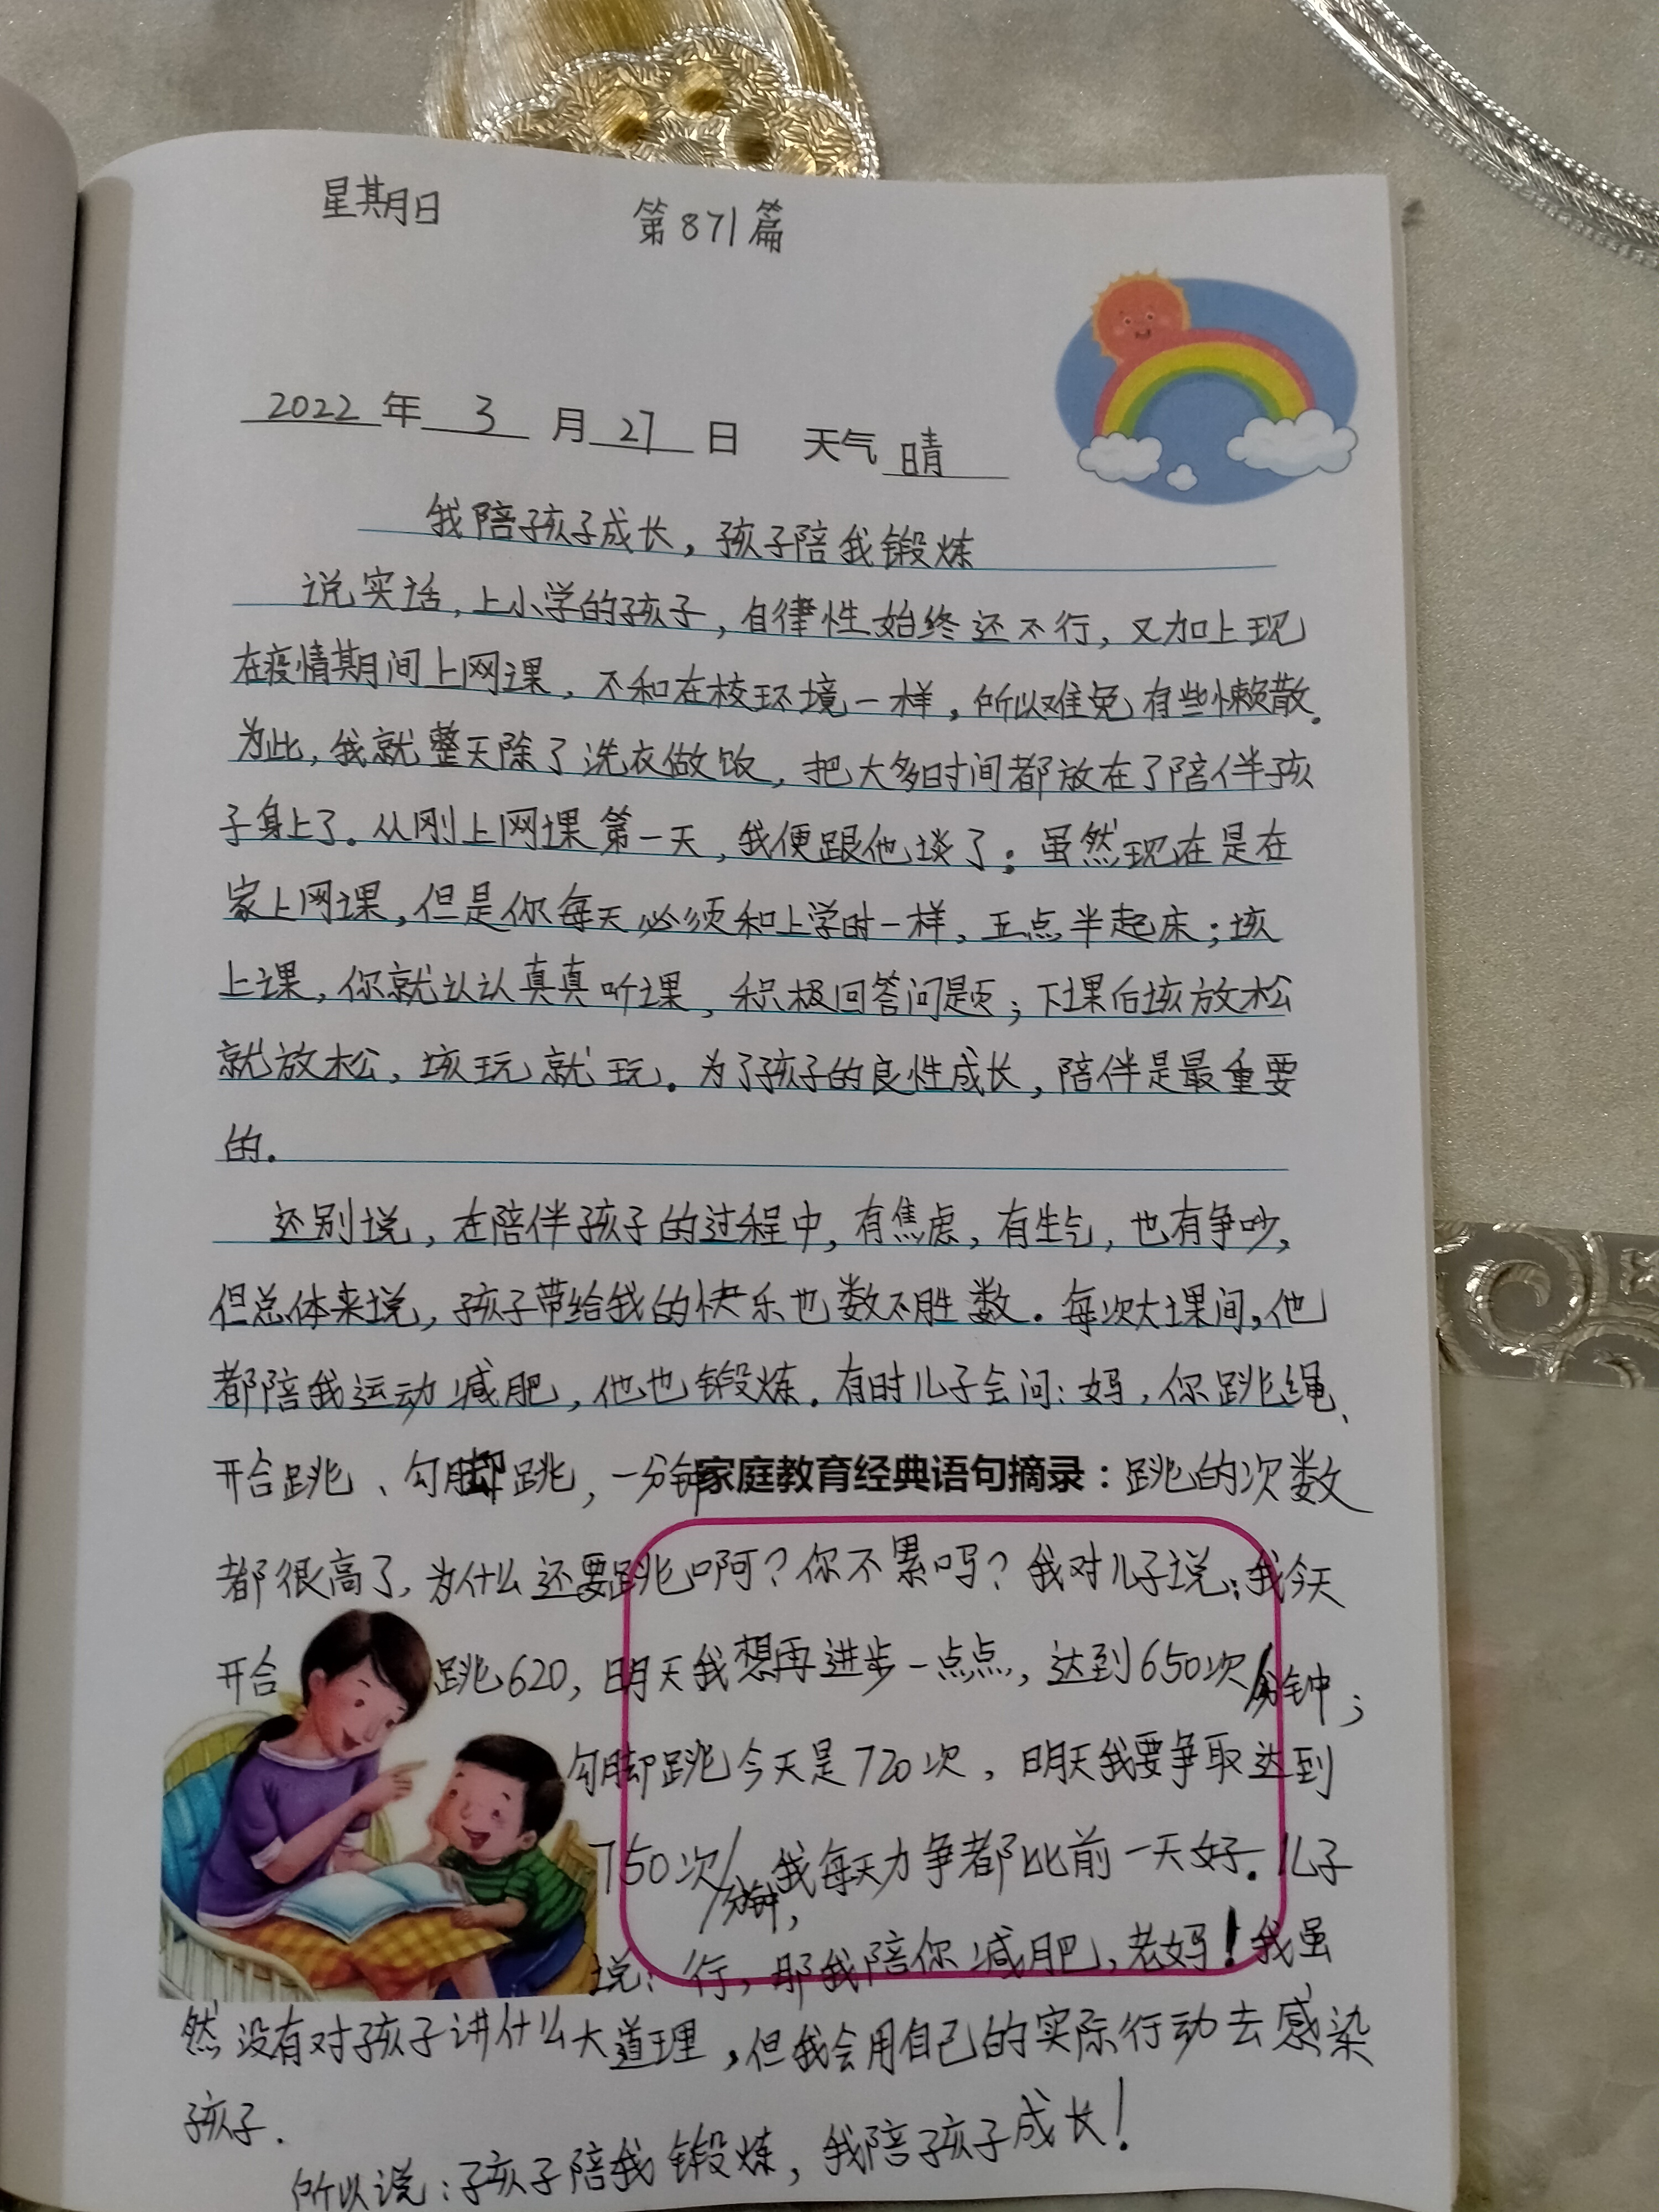 星期日 第871篇
2022年3月27日 天气晴
我陪孩子成长，孩子陪我锻炼
说实话，上小学的孩子，自律性始终还不行，又加上现
在疫情期间上网课，不和在校环境一样，所以难免有些懒散。
为此，我就整天除了洗衣做饭，把大多时间都放在了陪伴孩
子身上了。从刚上网课第一天，我便跟他谈了：虽然现在是在
家上网课，但是你每天必须和上学时一样，五点半起床；该
上课，你就认认真真听课，积极回答问题；下课后该放松
就放松，该玩就玩。为了孩子的良性成长，陪伴是最重要
的。
还别说，在陪伴孩子的过程中，有焦虑，有生气，也有争吵，
但总体来说，孩子带给我的快乐也数不胜数。每次大课间，他
都陪我运动减肥，他也锻炼。有时儿子会问：妈，你跳绳、
开合跳、勾脚跳，一分钟家庭教育经典语句摘录：跳的次数
都很高了，为什么还要跳啊？你不累吗？我对儿子说：我今天
开合跳620，明天我想再进步一点点，达到650次/分钟；
勾脚跳今天是720次，明天我要争取达到
750次/分钟，我每天力争都比前一天好。儿子
说：行，那我陪你减肥，老妈！我虽
然没有对孩子讲什么大道理，但我会用自己的实际行动去感染
孩子.
所以说：孩子陪我锻炼，我陪孩子成长！